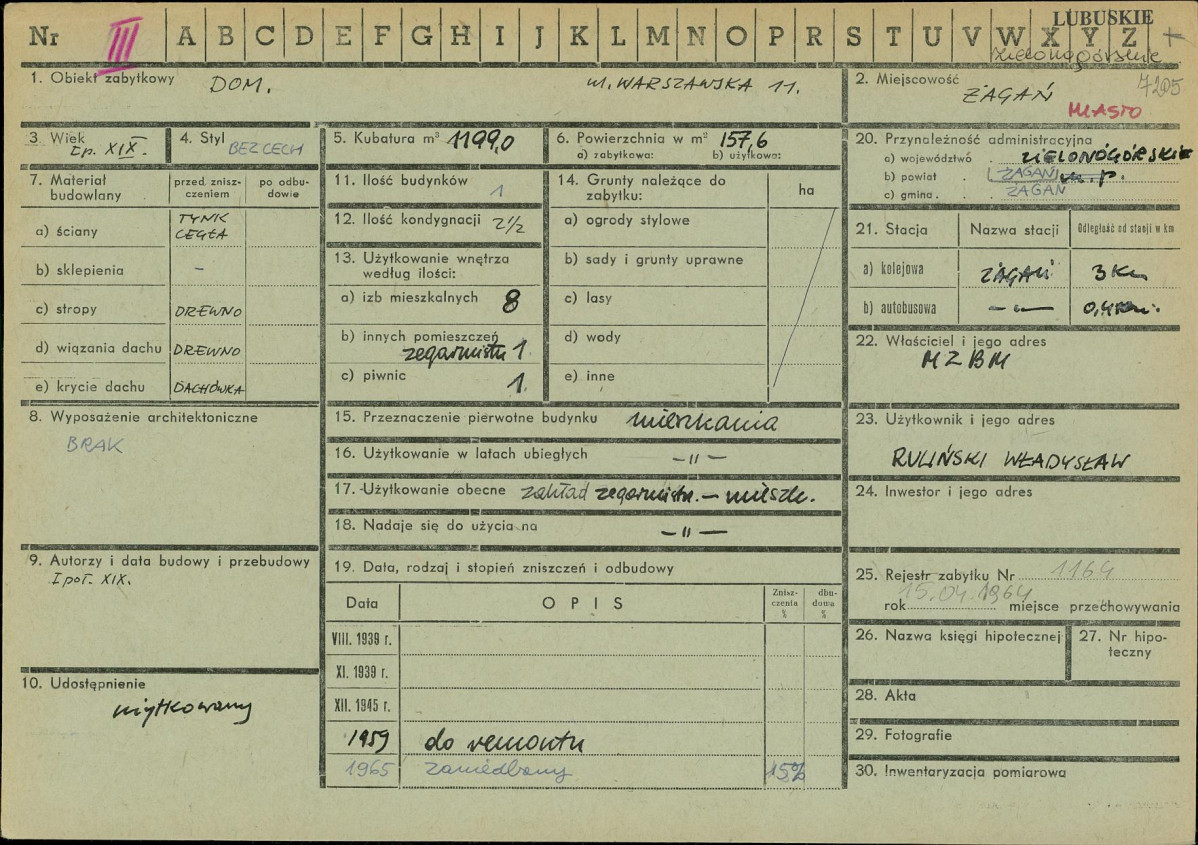 Nr III A B C D E F G H I J K L M N O P R S T U V W X Y Z
LUBUSKIE
zielonogórskie
1. Obiekt zabytkowy DOM. ul. WARSZAWSKA 11.
2. Miejscowość ŻAGAŃ 7205
MIASTO
3 Wiek Ip. XIX.
4. Styl BEZ CECH
5. Kubatura m³ 1199,0
6. Powierzchnia w m² 157,6
a) zabytkowa: b) użytkowa:
20. Przynależność administracyjna
a) województwo . ZIELONOGÓRSKIE
b) powiat . ŻAGAŃ m. p.
c) gmina . . ŻAGAŃ
7. Materiał budowlany
przed znisz-
czeniem
po odbu-
dowie
a) ściany TYNK
CEGŁA
b) sklepienia –
c) stropy DREWNO
d) wiązania dachu DREWNO
e) krycie dachu DACHÓWKA
8. Wyposażenie architektoniczne
BRAK
9. Autorzy i data budowy i przebudowy
I poł. XIX.
10. Udostępnienie
użytkowany
11. Ilość budynków 1
12. Ilość kondygnacji 2½
13. Użytkowanie wnętrza
według ilości:
a) izb mieszkalnych 8
b) innych pomieszczeń
zegarmistrz 1.
c) piwnic 1.
14. Grunty należące do
zabytku:
ha
a) ogrody stylowe
b) sady i grunty uprawne
c) lasy
d) wody
e) inne
15. Przeznaczenie pierwotne budynku mieszkania
16. Użytkowanie w latach ubiegłych –„–
17. Użytkowanie obecne zakład zegarmistrz. – mieszk.
18. Nadaje się do użycia na –„–
19. Data, rodzaj i stopień zniszczeń i odbudowy
Data OPIS
Znisz-
czenia
%
dbu-
doma
%
VIII. 1939 r.
XI. 1939 r.
XII. 1945 r.
1959 do remontu
1965 zaniedbany 15%
21. Stacja Nazwa stacji Odległość od stacji w km
a) kolejowa ŻAGAŃ 3 Km
b) autobusowa –„– 0,4 Km.
22. Właściciel i jego adres
MZBM
23. Użytkownik i jego adres
RULIŃSKI WŁADYSŁAW
24. Inwestor i jego adres
25. Rejestr zabytku Nr 1164
rok 15.04.1964 miejsce przechowywania
26. Nazwa księgi hipotecznej
27. Nr hipo-
teczny
28. Akta
29. Fotografie
30. Inwentaryzacja pomiarowa